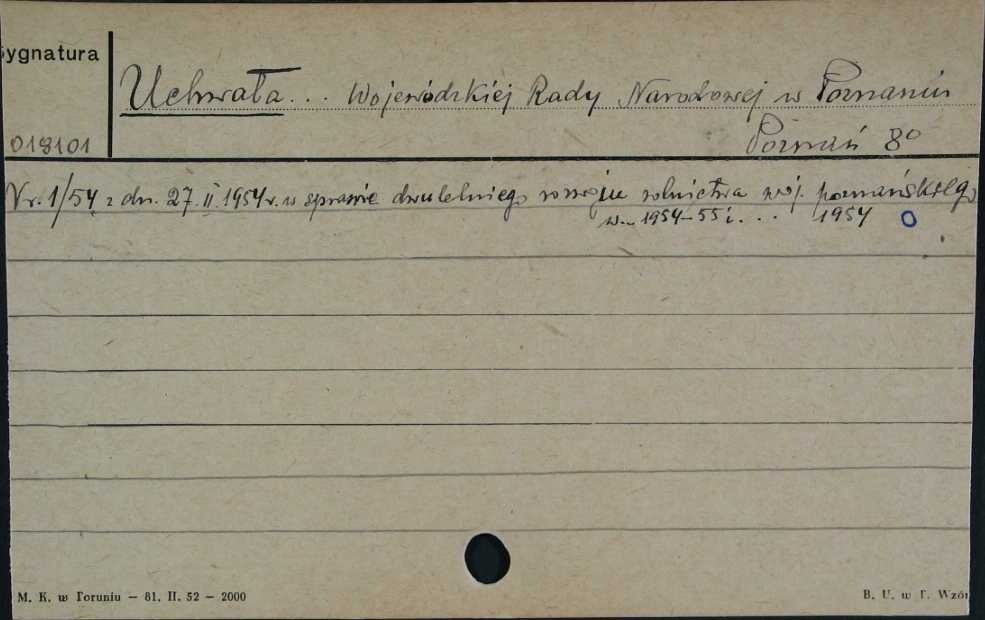 Sygnatura
Uchwała... Wojewódzkiej Rady Narodowej w Poznaniu
018101
Poznań 8º
Nr. 1/54 z dn. 27.II.1954r. w sprawie dwuletniego rozwoju rolnictwa woj. poznańskiego
w 1954-55 i... 1954 O
M. K. w Toruniu — 81. II. 52 — 2000
B. U. w T. Wzór